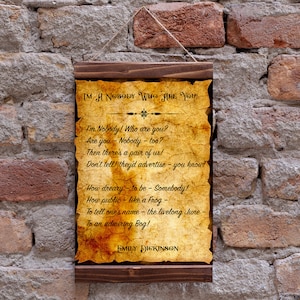 I'm A Nobody Who Are You
I'm Nobody! Who are you?
Are you – Nobody – too?
Then there's a pair of us!
Don't tell! they'd advertise – you know!
How dreary – to be – Somebody!
How public – like a Frog –
To tell one's name – the livelong June –
To an admiring Bog!
Emily Dickinson